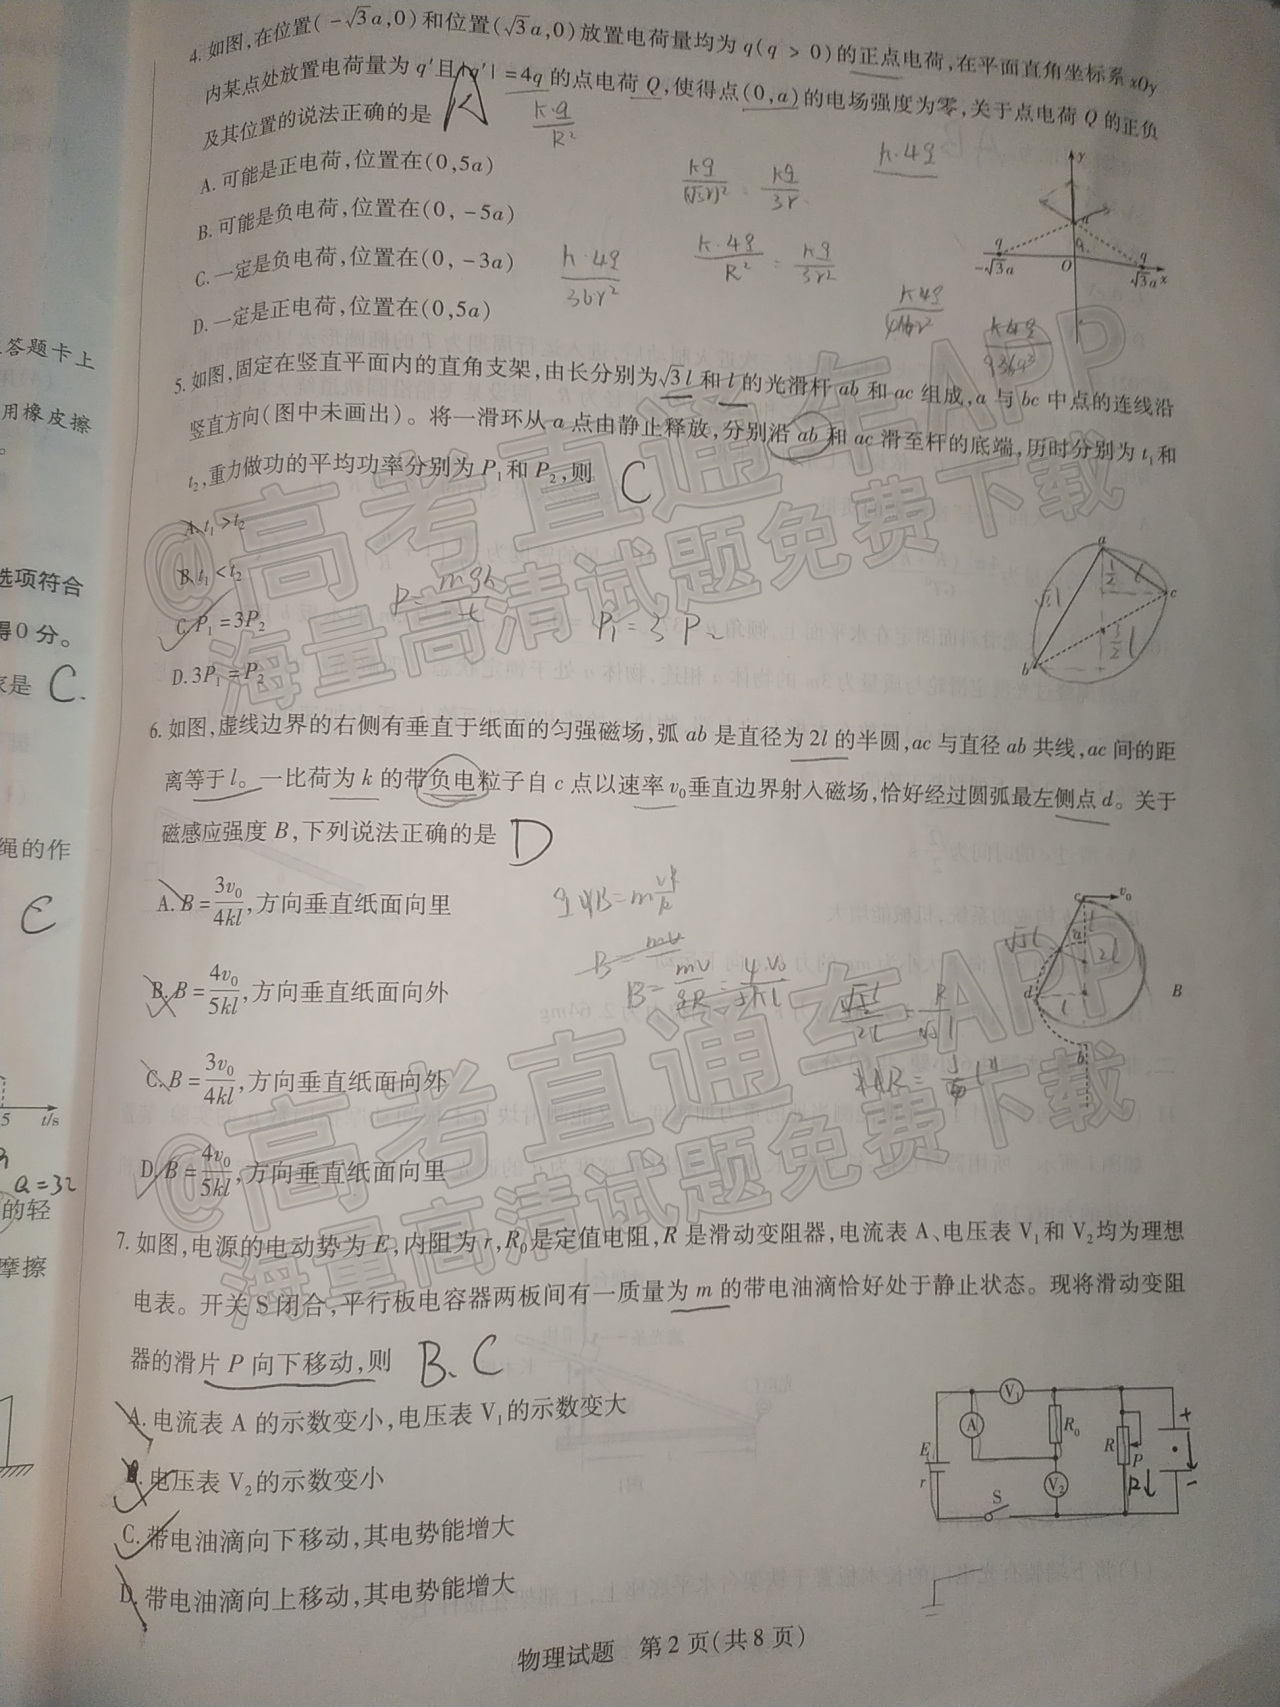 4. 如图,在位置(-√3a,0)和位置(√3a,0)放置电荷量均为q(q > 0)的正点电荷,在平面直角坐标系xOy
内某点处放置电荷量为 q′且|q′|=4q 的点电荷 Q,使得点(0,a)的电场强度为零,关于点电荷 Q 的正负
及其位置的说法正确的是 A
A. 可能是正电荷,位置在(0,5a)
B. 可能是负电荷,位置在(0,-5a)
C. 一定是负电荷,位置在(0,-3a)
D. 一定是正电荷,位置在(0,5a)
5. 如图,固定在竖直平面内的直角支架,由长分别为√3l 和 l 的光滑杆 ab 和 ac 组成,a 与 bc 中点的连线沿
竖直方向(图中未画出)。将一滑环从 a 点由静止释放,分别沿 ab 和 ac 滑至杆的底端,历时分别为 t₁和
t₂,重力做功的平均功率分别为 P₁和 P₂,则 C
A. t₁>t₂
B. t₁<t₂
C. P₁=3P₂
D. 3P₁=P₂
P₁=3P₂
6. 如图,虚线边界的右侧有垂直于纸面的匀强磁场,弧 ab 是直径为 2l 的半圆,ac 与直径 ab 共线,ac 间的距
离等于 l。一比荷为 k 的带负电粒子自 c 点以速率 v₀垂直边界射入磁场,恰好经过圆弧最左侧点 d。关于
磁感应强度 B,下列说法正确的是 D
A. B=3v₀/4kl,方向垂直纸面向里
B. B=4v₀/5kl,方向垂直纸面向外
C. B=3v₀/4kl,方向垂直纸面向外
D. B=4v₀/5kl,方向垂直纸面向里
7. 如图,电源的电动势为 E,内阻为 r,R₀是定值电阻,R 是滑动变阻器,电流表 A、电压表 V₁和 V₂均为理想
电表。开关 S 闭合,平行板电容器两板间有一质量为 m 的带电油滴恰好处于静止状态。现将滑动变阻
器的滑片 P 向下移动,则 B、C
A. 电流表 A 的示数变小,电压表 V₁的示数变大
B. 电压表 V₂的示数变小
C. 带电油滴向下移动,其电势能增大
D. 带电油滴向上移动,其电势能增大
物理试题 第2页(共8页)
答题卡上
用橡皮擦
选项符合
得0分。
家是 C.
绳的作
C
5 t/s
a=32
的轻
摩擦
@高考直通车APP
海量高清试题免费下载
@高考直通车APP
海量高清试题免费下载